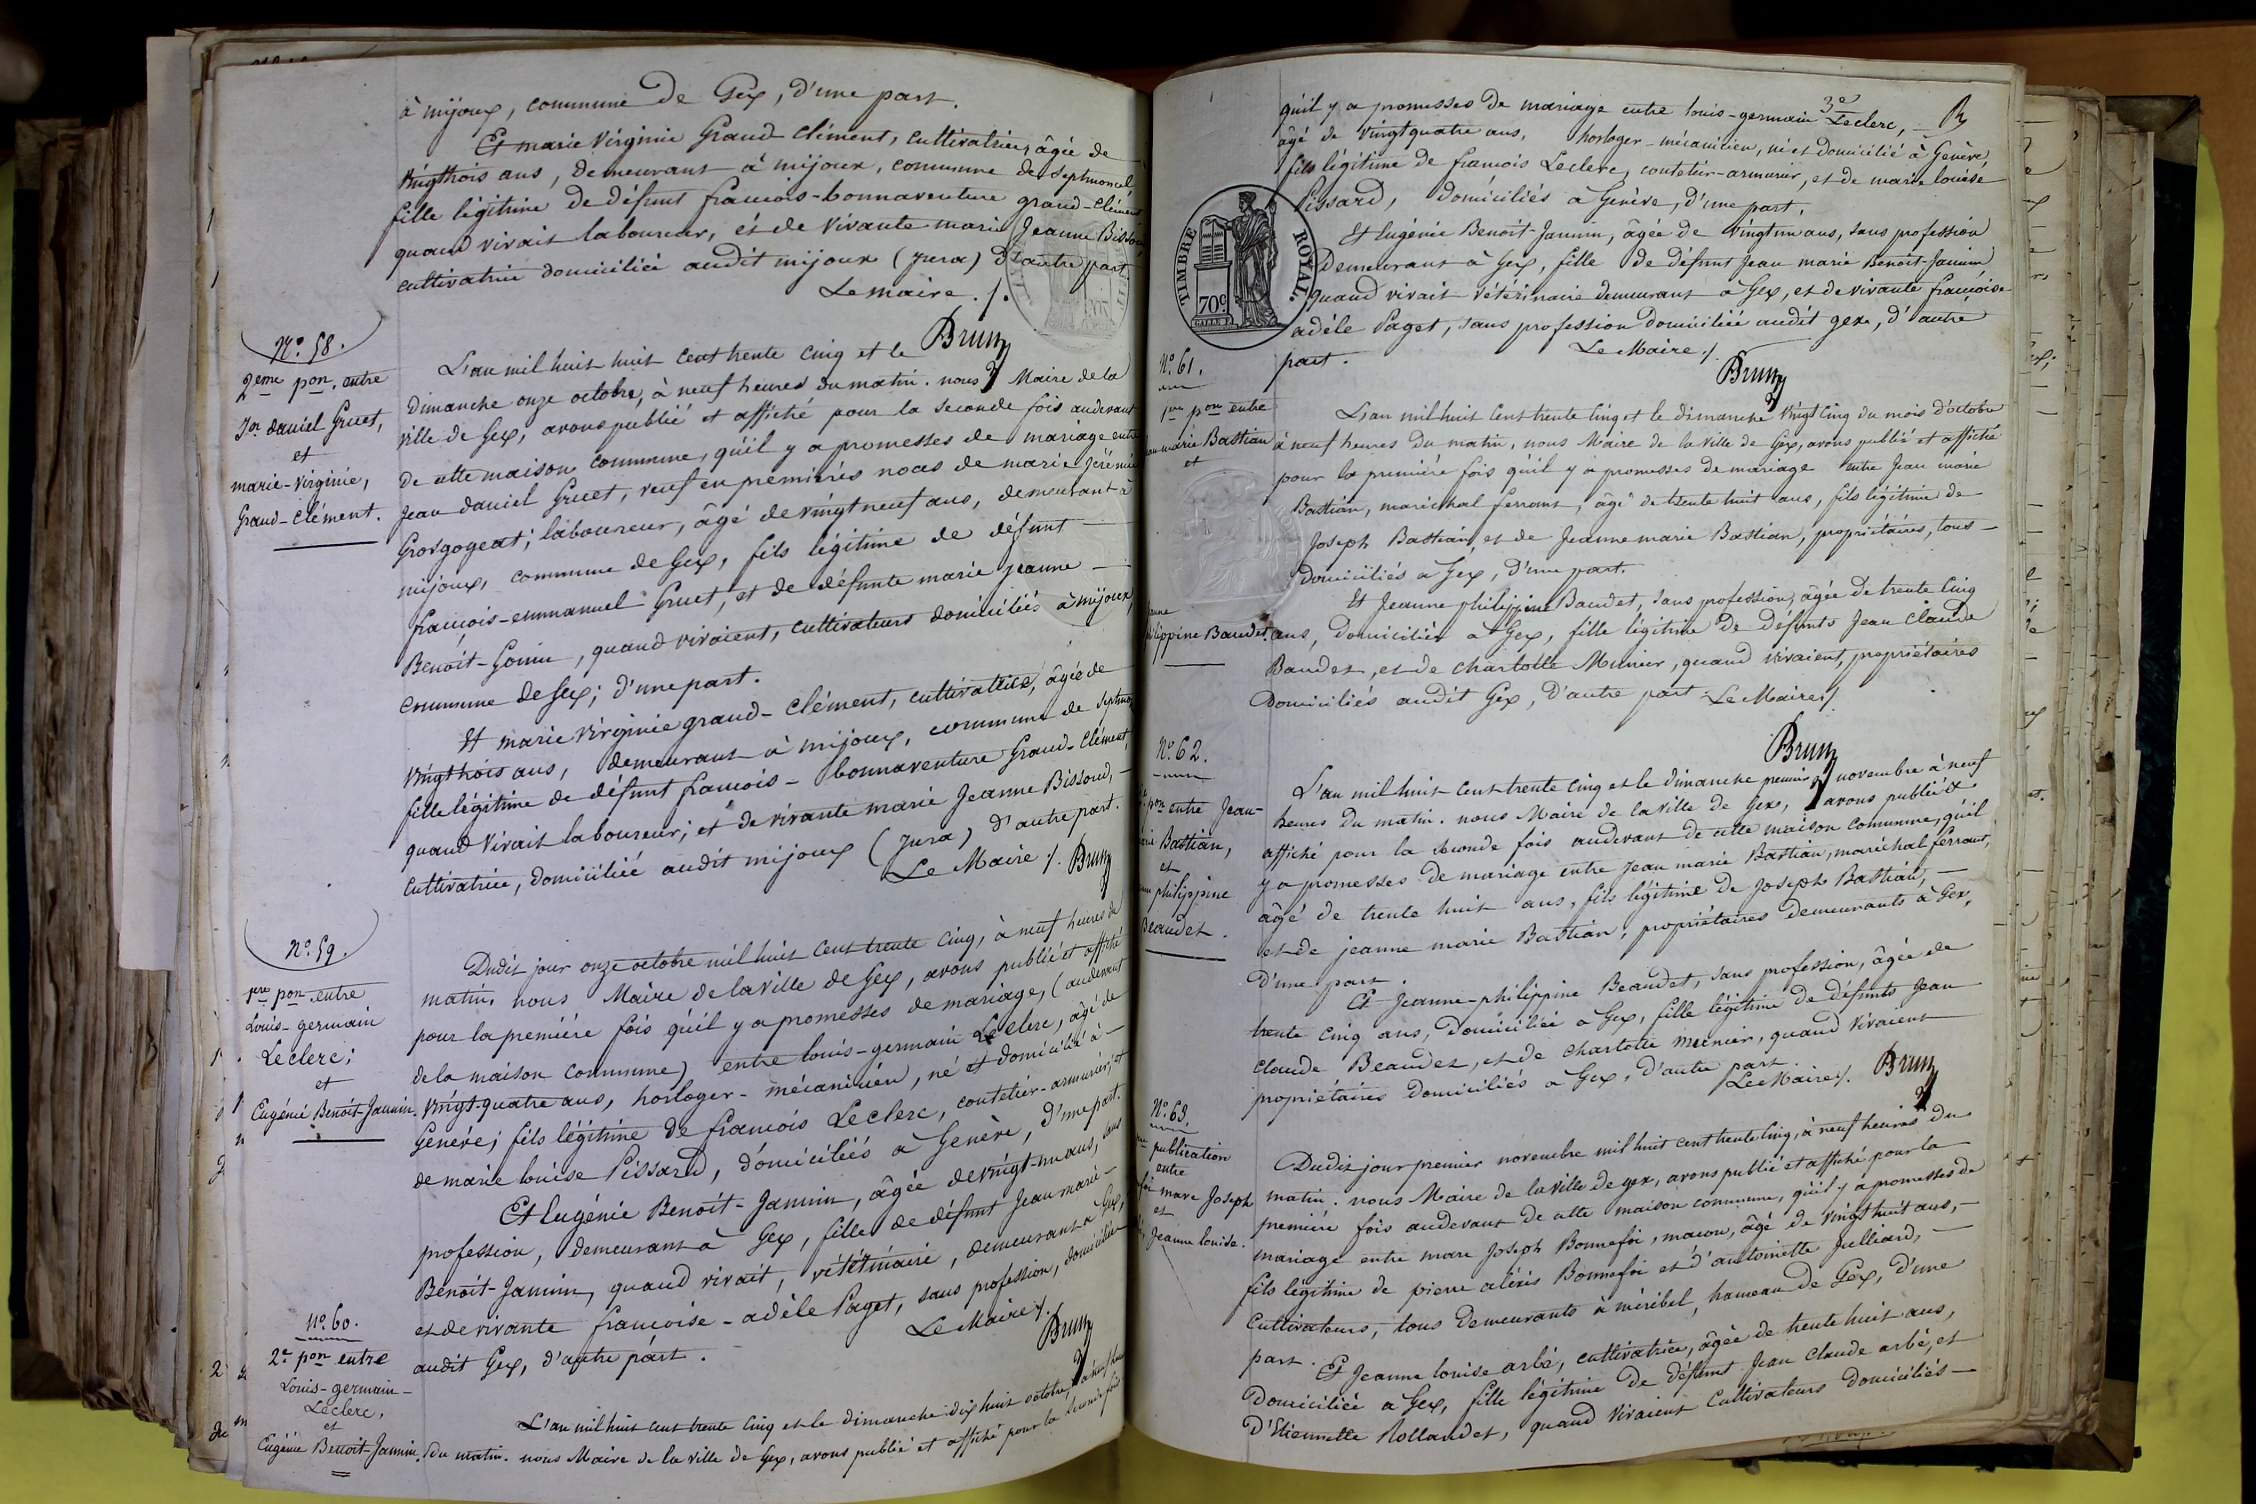 à mijoux, commune de Gex, d'une part.
Et marie Virginie Grand-Clément, cultivatrice, âgée de
vingttrois ans, demeurant à mijoux, commune de Septmoncel
fille légitime de défunt françois-bonnaventure grand-Clément
quand vivait laboureur, et de vivante marie Jeanne
cultivatrice domiciliée audit mijoux (Jura) d'autre part
Le maire ./.
Brun
N.° 58.
2eme pon. entre
Jn daniel Gruet,
et
marie-Virginie,
Grand-Clément.
L'an mil huit huit cent trente cinq et le
dimanche onze octobre, à neuf heures du matin. nous Maire de la
ville de Gex, avons publié et affiché pour la seconde fois audevant
de cette maison commune, qu'il y a promesses de mariage entre
Jean daniel Gruet, veuf en premières noces de marie Jérémie
Grosgogeat; laboureur, âgé de vingt neuf ans, demeurant à
mijoux, commune de Gex, fils légitime de défunt
françois-emmanuel Gruet, et de défunte marie jeanne
Benoit-Gonin, quand vivaient, cultivateurs domiciliés à mijoux
commune de Gex; d'une part.
Et marie Virginie grand-Clément, cultivatrice, âgée de
vingttrois ans, demeurant à mijoux, commune de
fille légitime de défunt françois-bonnaventure Grand-Clément,
quand vivait laboureur; et de vivante marie Jeanne Bissoud,
cultivatrice, domiciliée audit mijoux (Jura) d'autre part.
Le Maire ./. Brun
N.° 59.
1ere pon. entre
Louis-germain
Leclerc;
et
Eugénie Benoit-Jannin.
Dudit jour onze octobre mil huit cent trente cinq, à neuf heures du
matin. nous Maire de la ville de Gex, avons publié et affiché
pour la première fois qu'il y a promesses de mariage, (audevant
de la maison commune) entre louis-germain Leclerc, âgé de
vingt-quatre ans, horloger-mécanicien, né et domicilié à
Genève; fils légitime de françois Leclerc, coutelier-armurier, et
de marie louise Pissard, domiciliés à Genève, d'une part.
Et Eugénie Benoit-Jannin, âgée de vingt-un ans, sans
profession, demeurant à Gex, fille de défunt Jean marie
Benoit-Jannin, quand vivait, vétérinaire, demeurant à Gex,
et de vivante françoise-adèle Paget, sans profession, domiciliée
audit Gex, d'autre part.
Le Maire ./.
Brun
n.° 60.
2e pon entre
Louis-germain-
Leclerc,
et
Eugénie Benoit-Jannin.
L'an mil huit cent trente cinq et le dimanche dix huit octobre,
du matin. nous Maire de la ville de Gex, avons publié et affiché pour la seconde fois
3e
qu'il y a promesses de mariage entre louis-germain Leclerc,
âgé de vingt quatre ans, horloger-mécanicien, né et domicilié à Genève,
fils légitime de françois Leclerc, coutelier-armurier, et de marie louise
Pissard, domiciliés à Genève, d'une part.
Et Eugénie Benoit-Jannin, âgée de vingt un ans, sans profession
demeurant à Gex, fille de défunt Jean marie Benoit-Jannin
quand vivait vétérinaire demeurant à Gex, et de vivante françoise
adèle Paget, sans profession domiciliée audit gex, d'autre
part.
Le Maire ./.
Brun
TIMBRE ROYAL.
70c.
N.° 61.
1ere pon entre
marie Bastian
et
Baudet.
L'an mil huit cent trente cinq et le dimanche vingt cinq du mois d'octobre
à neuf heures du matin, nous Maire de la ville de Gex, avons publié et affiché
pour la première fois qu'il y a promesses de mariage entre Jean marie
Bastian, maréchal ferrant, âgé de trente huit ans, fils légitime de
Joseph Bastian, et de Jeanne marie Bastian, propriétaires, tous
domiciliés à Gex, d'une part.
Et Jeanne philippine Baudet, sans profession, âgée de trente cinq
ans, domiciliée à Gex, fille légitime de défunts Jean Claude
Baudet, et de charlotte Munier, quand vivaient, propriétaires
domiciliés audit Gex, d'autre part. Le Maire ./.
Brun
N.° 62.
pon entre Jean-
Bastian,
et
philippine
Beaudet.
L'an mil huit cent trente cinq et le dimanche premier novembre à neuf
heures du matin. nous Maire de la ville de Gex, avons publié et
affiché pour la seconde fois audevant de cette maison commune, qu'il
y a promesses de mariage entre Jean marie Bastian, maréchal ferrant,
âgé de trente huit ans, fils légitime de Joseph Bastian,
et de jeanne marie Bastian, propriétaires demeurants à Gex,
d'une part.
Et Jeanne-philippine Beaudet, sans profession, âgée de
trente cinq ans, domiciliée à Gex, fille légitime de défunts Jean
claude Beaudet, et de charlotte meunier, quand vivaient
propriétaires domiciliés à Gex, d'autre part.
Le Maire ./. Brun
N.° 63.
publication
entre
marc Joseph
et
Jeanne louise.
Dudit jour premier novembre mil huit cent trente cinq, à neuf heures du
matin. nous Maire de la ville de gex, avons publié et affiché pour la
première fois audevant de cette maison commune, qu'il y a promesses de
mariage entre marc Joseph Bonnefoi, maçon, âgé de vingt huit ans,
fils légitime de pierre alexis Bonnefoi et d'antoinette Julliard,
cultivateurs, tous demeurants à méribel, hameau de Gex, d'une
part.
Et Jeanne louise arbé, cultivatrice, âgée de trente huit ans,
domiciliée à Gex, fille légitime de défunt Jean Claude arbé, et
d'Etiennette Rollandet, quand vivaient cultivateurs domiciliés